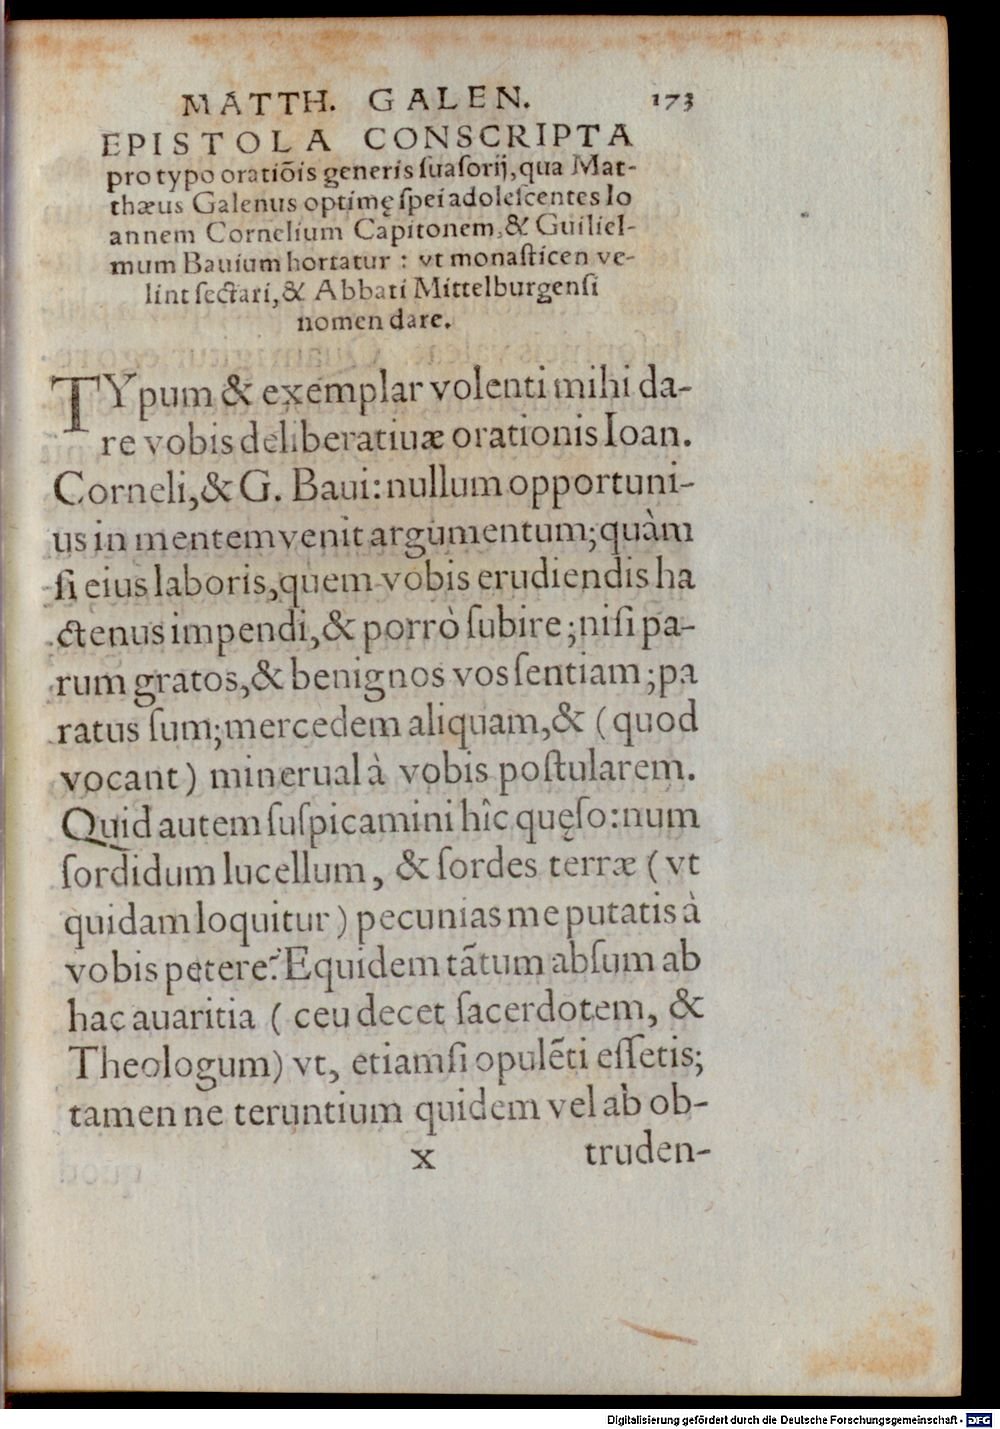 MATTH. GALEN. 173
EPISTOLA CONSCRIPTA
pro typo oratiõis generis ſuaſorij, qua Mat-
thæus Galenus optimę ſpei adoleſcentes Io
annem Cornelium Capitonem, & Guiliel-
mum Bauium hortatur : vt monaſticen ve-
lint ſectari, & Abbati Mittelburgenſi
nomen dare.
TYpum & exemplar volenti mihi da-
re vobis deliberatiuæ orationis Ioan.
Corneli, & G. Baui: nullum opportuni-
us in mentem venit argumentum; quàm
ſi eius laboris, quem vobis erudiendis ha
ctenus impendi, & porrò ſubire; niſi pa-
rum gratos, & benignos vos ſentiam; pa
ratus ſum; mercedem aliquam, & (quod
vocant) minerual à vobis poſtularem.
Quid autem ſuſpicamini hîc quęſo: num
ſordidum lucellum, & ſordes terræ (vt
quidam loquitur) pecunias me putatis à
vobis petere? Equidem tãtum abſum ab
hac auaritia (ceu decet ſacerdotem, &
Theologum) vt, etiamſi opulẽti eſſetis;
tamen ne teruntium quidem vel ab ob-
x truden-
Digitalisierung gefördert durch die Deutsche Forschungsgemeinschaft - DFG